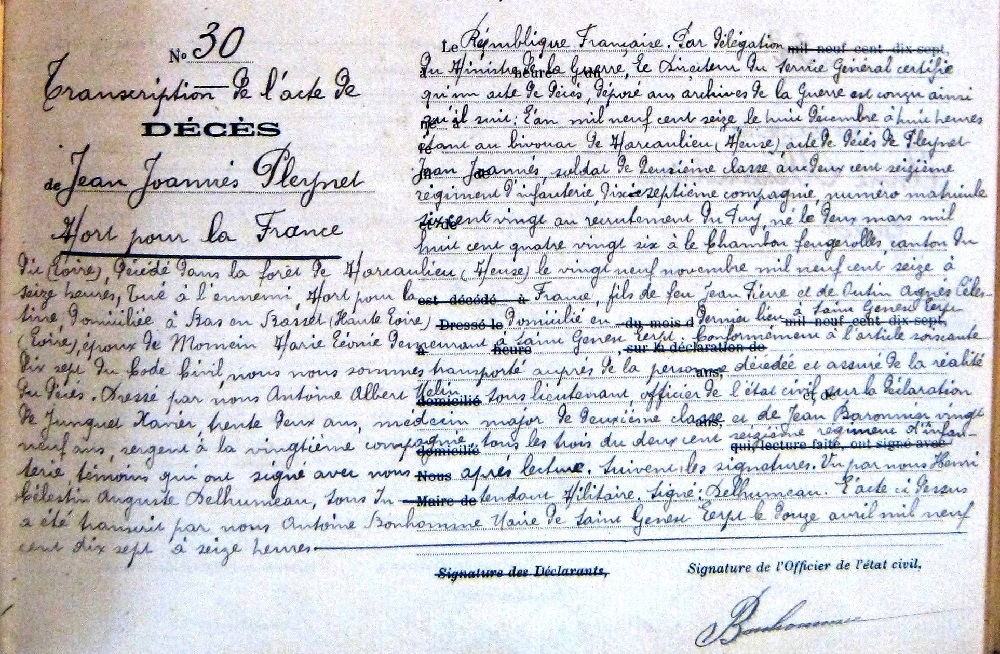 No 30
Transcription de l'acte de
DÉCÈS
de Jean Joannès Pleynet
Mort pour la France
Le République Française. Par délégation mil neuf cent dix-sept,
du Ministre de la Guerre, Le Directeur du service Général certifie
qu'un acte de décès, déposé aux archives de la Guerre est conçu ainsi
qu'il suit: L'an mil neuf cent seize le huit décembre à huit heures
étant au bivouac de Harcaulieu (Meuse) acte de décès de Pleynet
Jean Joannès, soldat de deuxième classe au deux cent seizième
régiment d'infanterie, dix-septième compagnie, numéro matricule
six cent vingt au recrutement du Puy, né le deux mars mil
huit cent quatre vingt six à le Chambon feugerolles, canton du
dit (Loire), décédé dans la forêt de Harcaulieu (Meuse) le vingt neuf novembre mil neuf cent seize à
seize heures, tué à l'ennemi, Mort pour la est décédé à France, fils de feu Jean Pierre et de Outin Agnès Céles-
tine domiciliée à Bas en Basset (Haute Loire) Dressé le Domicilié en du mois d dernier lieu à Saint Genest Lerpt mil neuf cent dix-sept,
(Loire), époux de Momein Marie Léonie demeurant à Saint Genest Lerpt, Conformément à l'article soixante sur la déclaration de
dix sept du Code Civil, nous nous sommes transporté auprès de la personne décédée et assuré de la réalité
du décès. Dressé par nous Antoine Albert Melin domicilié sous lieutenant, officier de l'état civil, sur la déclaration
de Junquet Xavier, trente deux ans, médecin major de deuxième classe et de Jean Baronnier vingt
neuf ans, sergent à la vingtième compagnie, domicilié tous les trois du deux cent seizième régiment d'infan- qui, lecture faite, ont signé avec
terie, témoins qui ont signé avec nous Nous après lecture. Suivent les signatures. Vu par nous Henri
Célestin Auguste Delhumeau, sous In Maire de tendant Militaire. Signé: Delhumeau. L'acte ci dessus
a été transcrit par nous Antoine Bonhomme Maire de Saint Genest Lerpt le douze avril mil neuf
cent dix sept à seize heures
Signature des Déclarants,
Signature de l'Officier de l'état civil,
Bonhomme